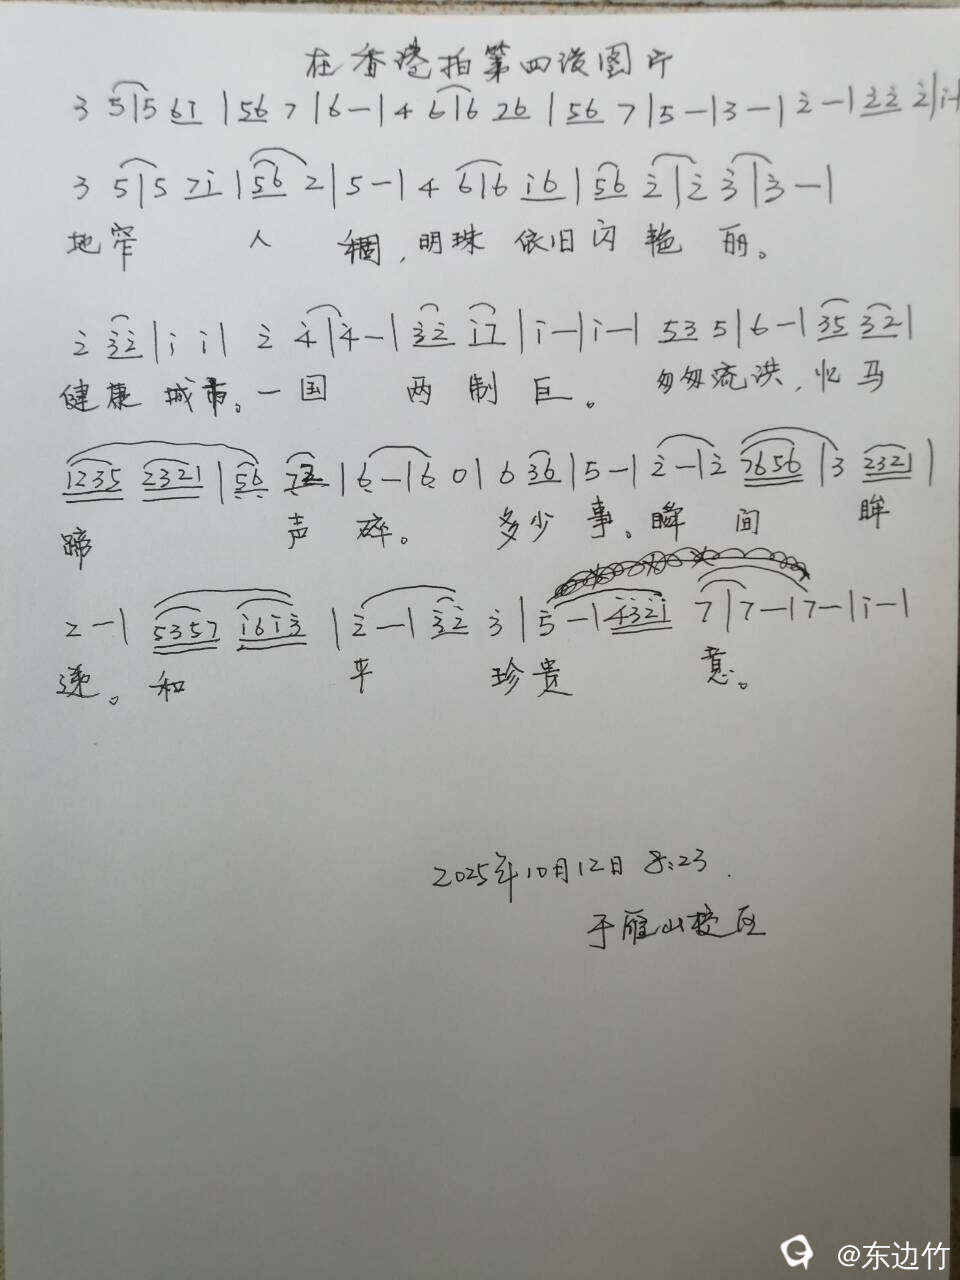 在香港拍第四没图片
3 5|5 6i |56 7 |6-|4 6|6 26 |56 7|5-|3-|2̇-|2̇2̇ 2̇|i-|
3 5|5 7i |56 2|5-|4 6|6 i6|56 2̇|2̇ 3̇|3̇-|
地窄 人 稠,明珠 依旧闪 艳 丽。
2̇ 3̇2̇|i i| 2̇ 4̇|4̇-|3̇2̇ i7|i-|i-| 53 5|6-|35 32|
健康 城市。一国 两 制 巨。 匆匆流洪,忆马
1235 2321|56 72|6-|6 0|6 36|5-|2̇-|2̇ 7656|3 2321|
蹄 声 碎。 多少 事。瞬 间 眸
2-|5357 i6i3̇|2̇-|3̇2̇ 3̇|5̇-|4̇3̇2̇i 7|7-|7-|i-|
逑。和 平 珍贵 意。
2025年10月12日 8:23.
于雁山校区
@东边竹